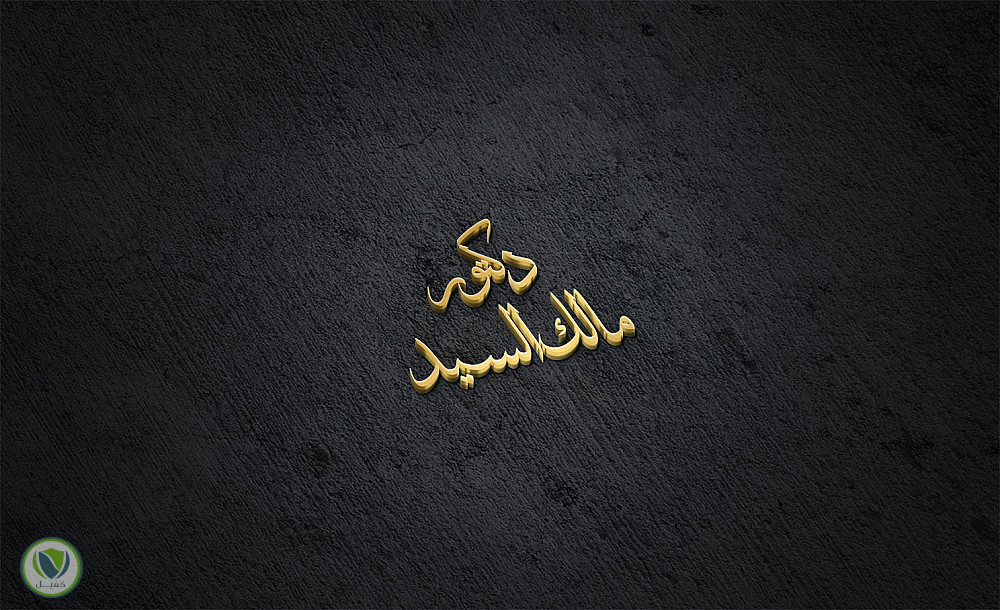 دكتور
مالك السيد
كفيل